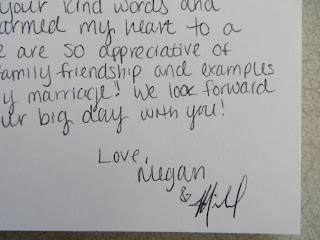 your kind words and
armed my heart to a
e are so appreciative of
family friendship and examples
y marriage! We look forward
ur big day with you!
Love,
Megan
&